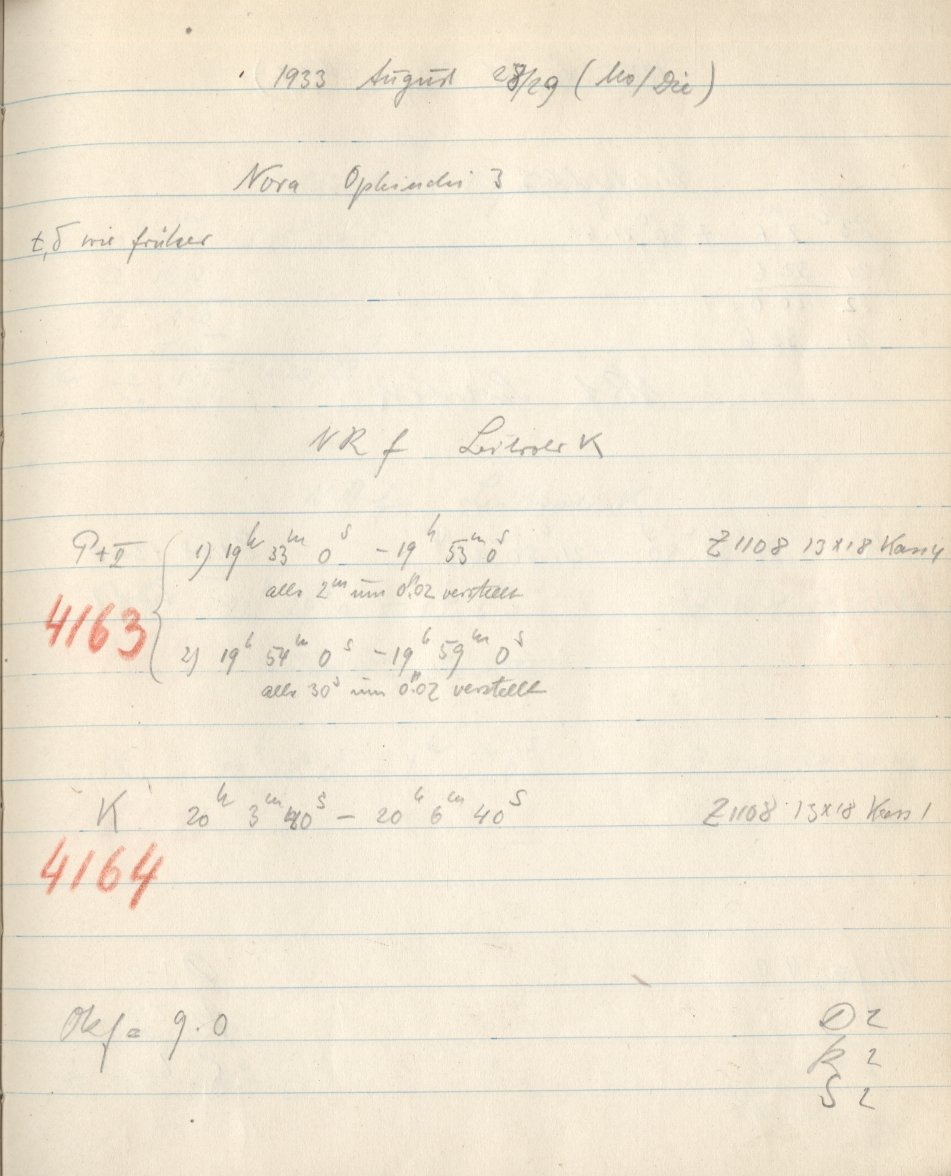 1933 August 28/29 (Mo/Die)
Nova Ophiuchi 3
t, δ wie früher
NR f Leitrohr K
P+V 1) 19h 33m 0s - 19h 53m 0s Z1108 13x18 Kass 4
alle 2m um 0".02 verstellt
4163
2) 19h 54m 0s - 19h 59m 0s
alle 30s um 0".02 verstellt
K 20h 3m 40s - 20h 6m 40s Z1108 13x18 Kass 1
4164
Okf = 9.0
D 2
R 2
S 2